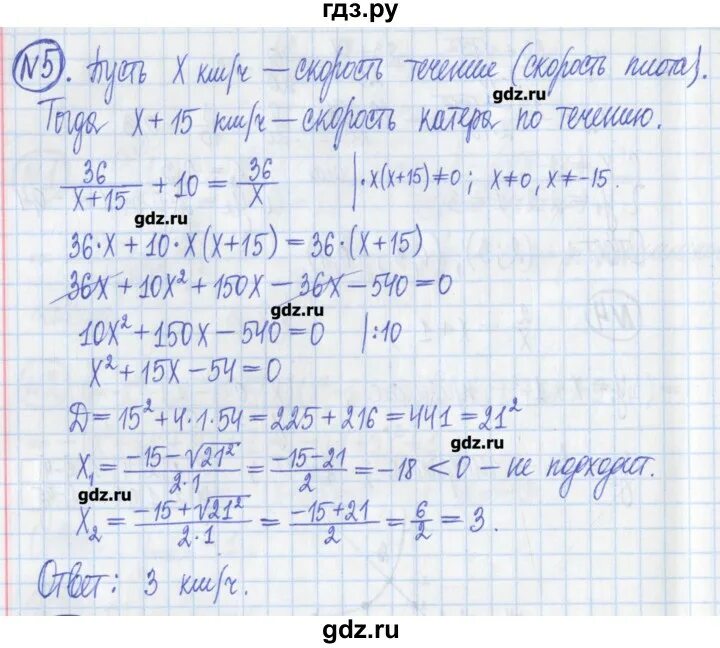 гдз.ру
№5. Пусть x км/ч — скорость течение (скорость плота).
gdz.ru
Тогда x+15 км/ч — скорость катера по течению.
36/(x+15) + 10 = 36/x |·x(x+15)≠0; x≠0, x≠-15.
gdz.ru
36·x+10·x(x+15)=36·(x+15)
36x+10x²+150x−36x−540=0
gdz.ru
10x²+150x−540=0 |:10
x²+15x−54=0
Д=15²+4·1·54=225+216=441=21²
gdz.ru
x₁=(−15−√21²)/(2·1)=(−15−21)/2=−18<0 — не подходит.
gdz.ru
x₂=(−15+√21²)/(2·1)=(−15+21)/2=6/2=3.
Ответ: 3 км/ч.
gdz.ru